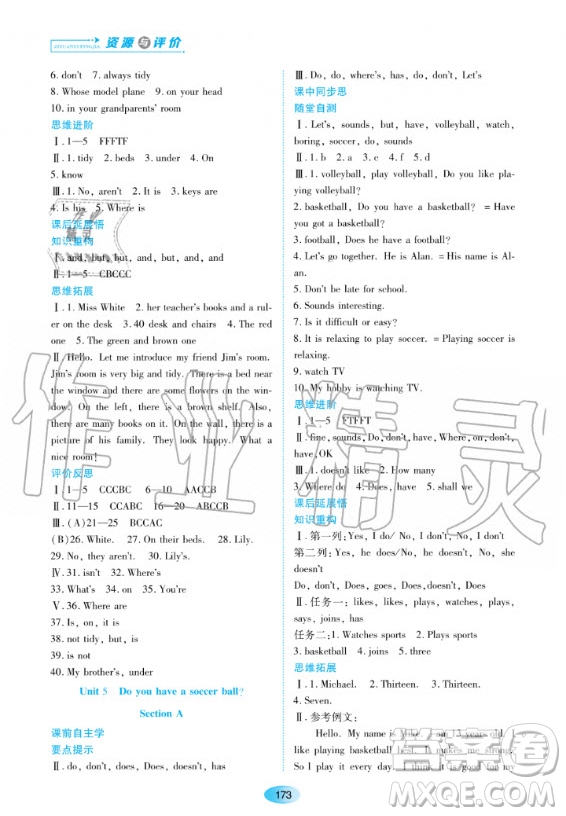 资源与评价
6. don't 7. always tidy
8. Whose model plane 9. on your head
10. in your grandparents' room
思维进阶
Ⅰ. 1—5 FFFTF
Ⅱ. 1. tidy 2. beds 3. under 4. On
5. know
Ⅲ. 1. No, aren't 2. It is 3. Where are
4. Is his 5. Where is
课后延展悟
知识重构
Ⅰ. and, but, but, and, but, and, and
Ⅱ. 1—5 CBCCC
思维拓展
Ⅰ. 1. Miss White 2. her teacher's books and a rul-
er on the desk 3. 40 desk and chairs 4. The red
one 5. The green and brown one
Ⅱ. Hello. Let me introduce my friend Jim's room.
Jim's room is very big and tidy. There is a bed near
the window and there are some flowers on the win-
dow! Behind the door there is a soccer ball. Also,
there are many books on the desk. On the wall, there is a
picture of his family. They look happy. What a
nice room!
评价反思
Ⅰ. 1—5 CCCBC 6—10 AACCB
Ⅱ. 11—15 16—20 ABCCB
Ⅲ. (A)21—25 BCCAC
(B)26. White. 27. On their beds. 28. Lily's.
29. No, they aren't. 30. Lily's.
Ⅳ. 31. isn't 32. There's
33. What's 34. on 35. and
Ⅴ. 36. Where
37. Is, on, it
38. not tidy, but, is
39. is
40. My brother's, under
Unit 5 Do you have a soccer ball?
Section A
课前自主学
要点提示
Ⅱ. do, don't, does, does, Does, does, doesn't
Ⅲ. Do, do, where's, has, do, don't, Let's
课中同步思
随堂自测
Ⅰ. Let's, sounds, but, have, volleyball, watch,
boring, soccer, do, don't
Ⅱ. 1. do 2. have 3. play 4. sounds 5. has
Ⅲ. 1. volleyball, play volleyball, Do you like pla-
ying volleyball?
2. basketball, Do you have a basketball? = Have
you got a basketball?
3. football, Does he have a football?
4. Let's go together. He is Alan. =His name is Al-
an.
5. Don't be late for school.
6. Sounds interesting.
7. Is it difficult or easy?
8. It is relaxing to play soccer. =Playing soccer is
relaxing.
9. watch TV
10. My hobby is watching TV.
思维进阶
Ⅰ. 1—5 FTFFT
Ⅱ. fine, sounds, Do, have, Where, on, don't,
have, OK
Ⅲ. 1. doesn't have 2. How many
3. Where do 4. Does, have 5. shall we
课后延展悟
知识重构
Ⅰ. 第一列: Yes, I do/ No, I don't
第二列: Yes, he does/No, he doesn't, No, she
doesn't
Do, don't, Does, goes, Does, doesn't, Does
Ⅱ. 任务一: likes, likes, plays, watches, plays,
says, joins, has
任务二: 1. Watches sports 2. Plays
3. basketball 4. soccer 5. three
思维拓展
Ⅰ. 1. Michael. 2. Thirteen. 3. Thirteen.
4. Seven.
Ⅱ. 参考例文:
Hello. My name is Mike. I am 13 years old. I
like playing basketball best. It makes me strong.
So I play it every day. I think it is good for my
173
作业精灵
答案圈